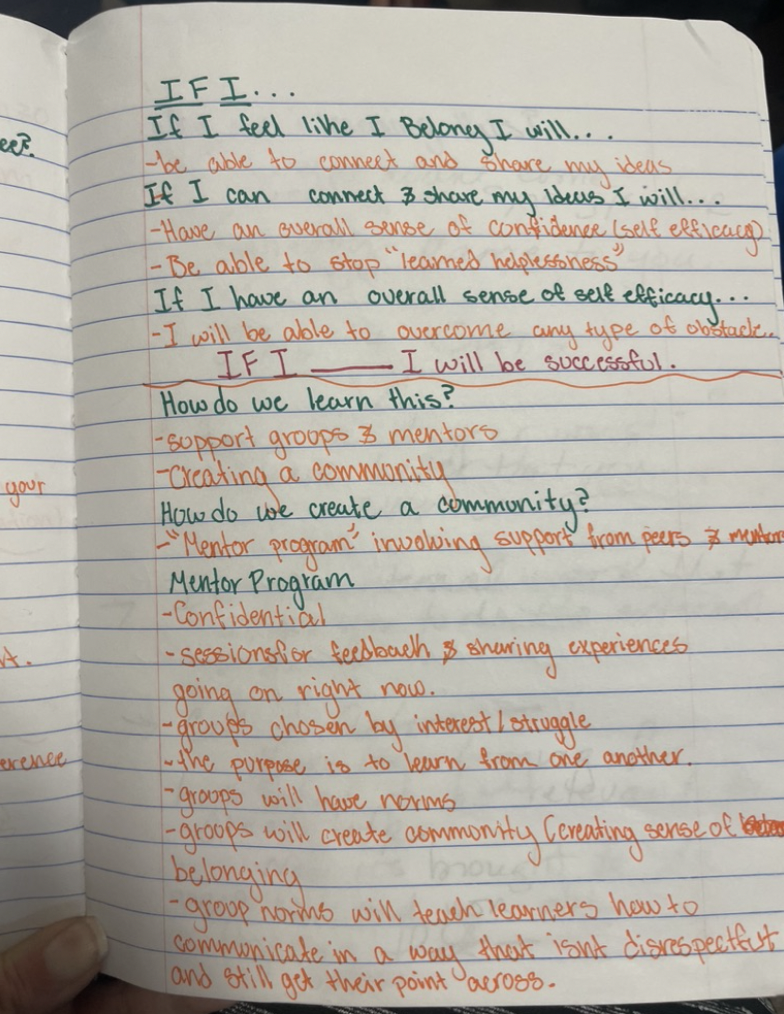 IF I...
If I feel like I Belong I will...
-be able to connect and share my ideas
If I can connect & share my Ideas I will...
-Have an overall sense of confidence (self efficacy)
-Be able to stop "learned helplessness"
If I have an overall sense of self efficacy...
-I will be able to overcome any type of obstacle..
IF I ____ I will be successful.
How do we learn this?
-support groups & mentors
-Creating a community
How do we create a community?
-"Mentor program" involving support from peers & mentors
Mentor Program
-Confidential
-sessions for feedback & sharing experiences
going on right now.
-groups chosen by interest/struggle
-the purpose is to learn from one another.
-groups will have norms
-groups will create community (creating sense of
belonging
-group norms will teach learners how to
communicate in a way that isnt disrespectful
and still get their point across.
ee?
your
t.
erence